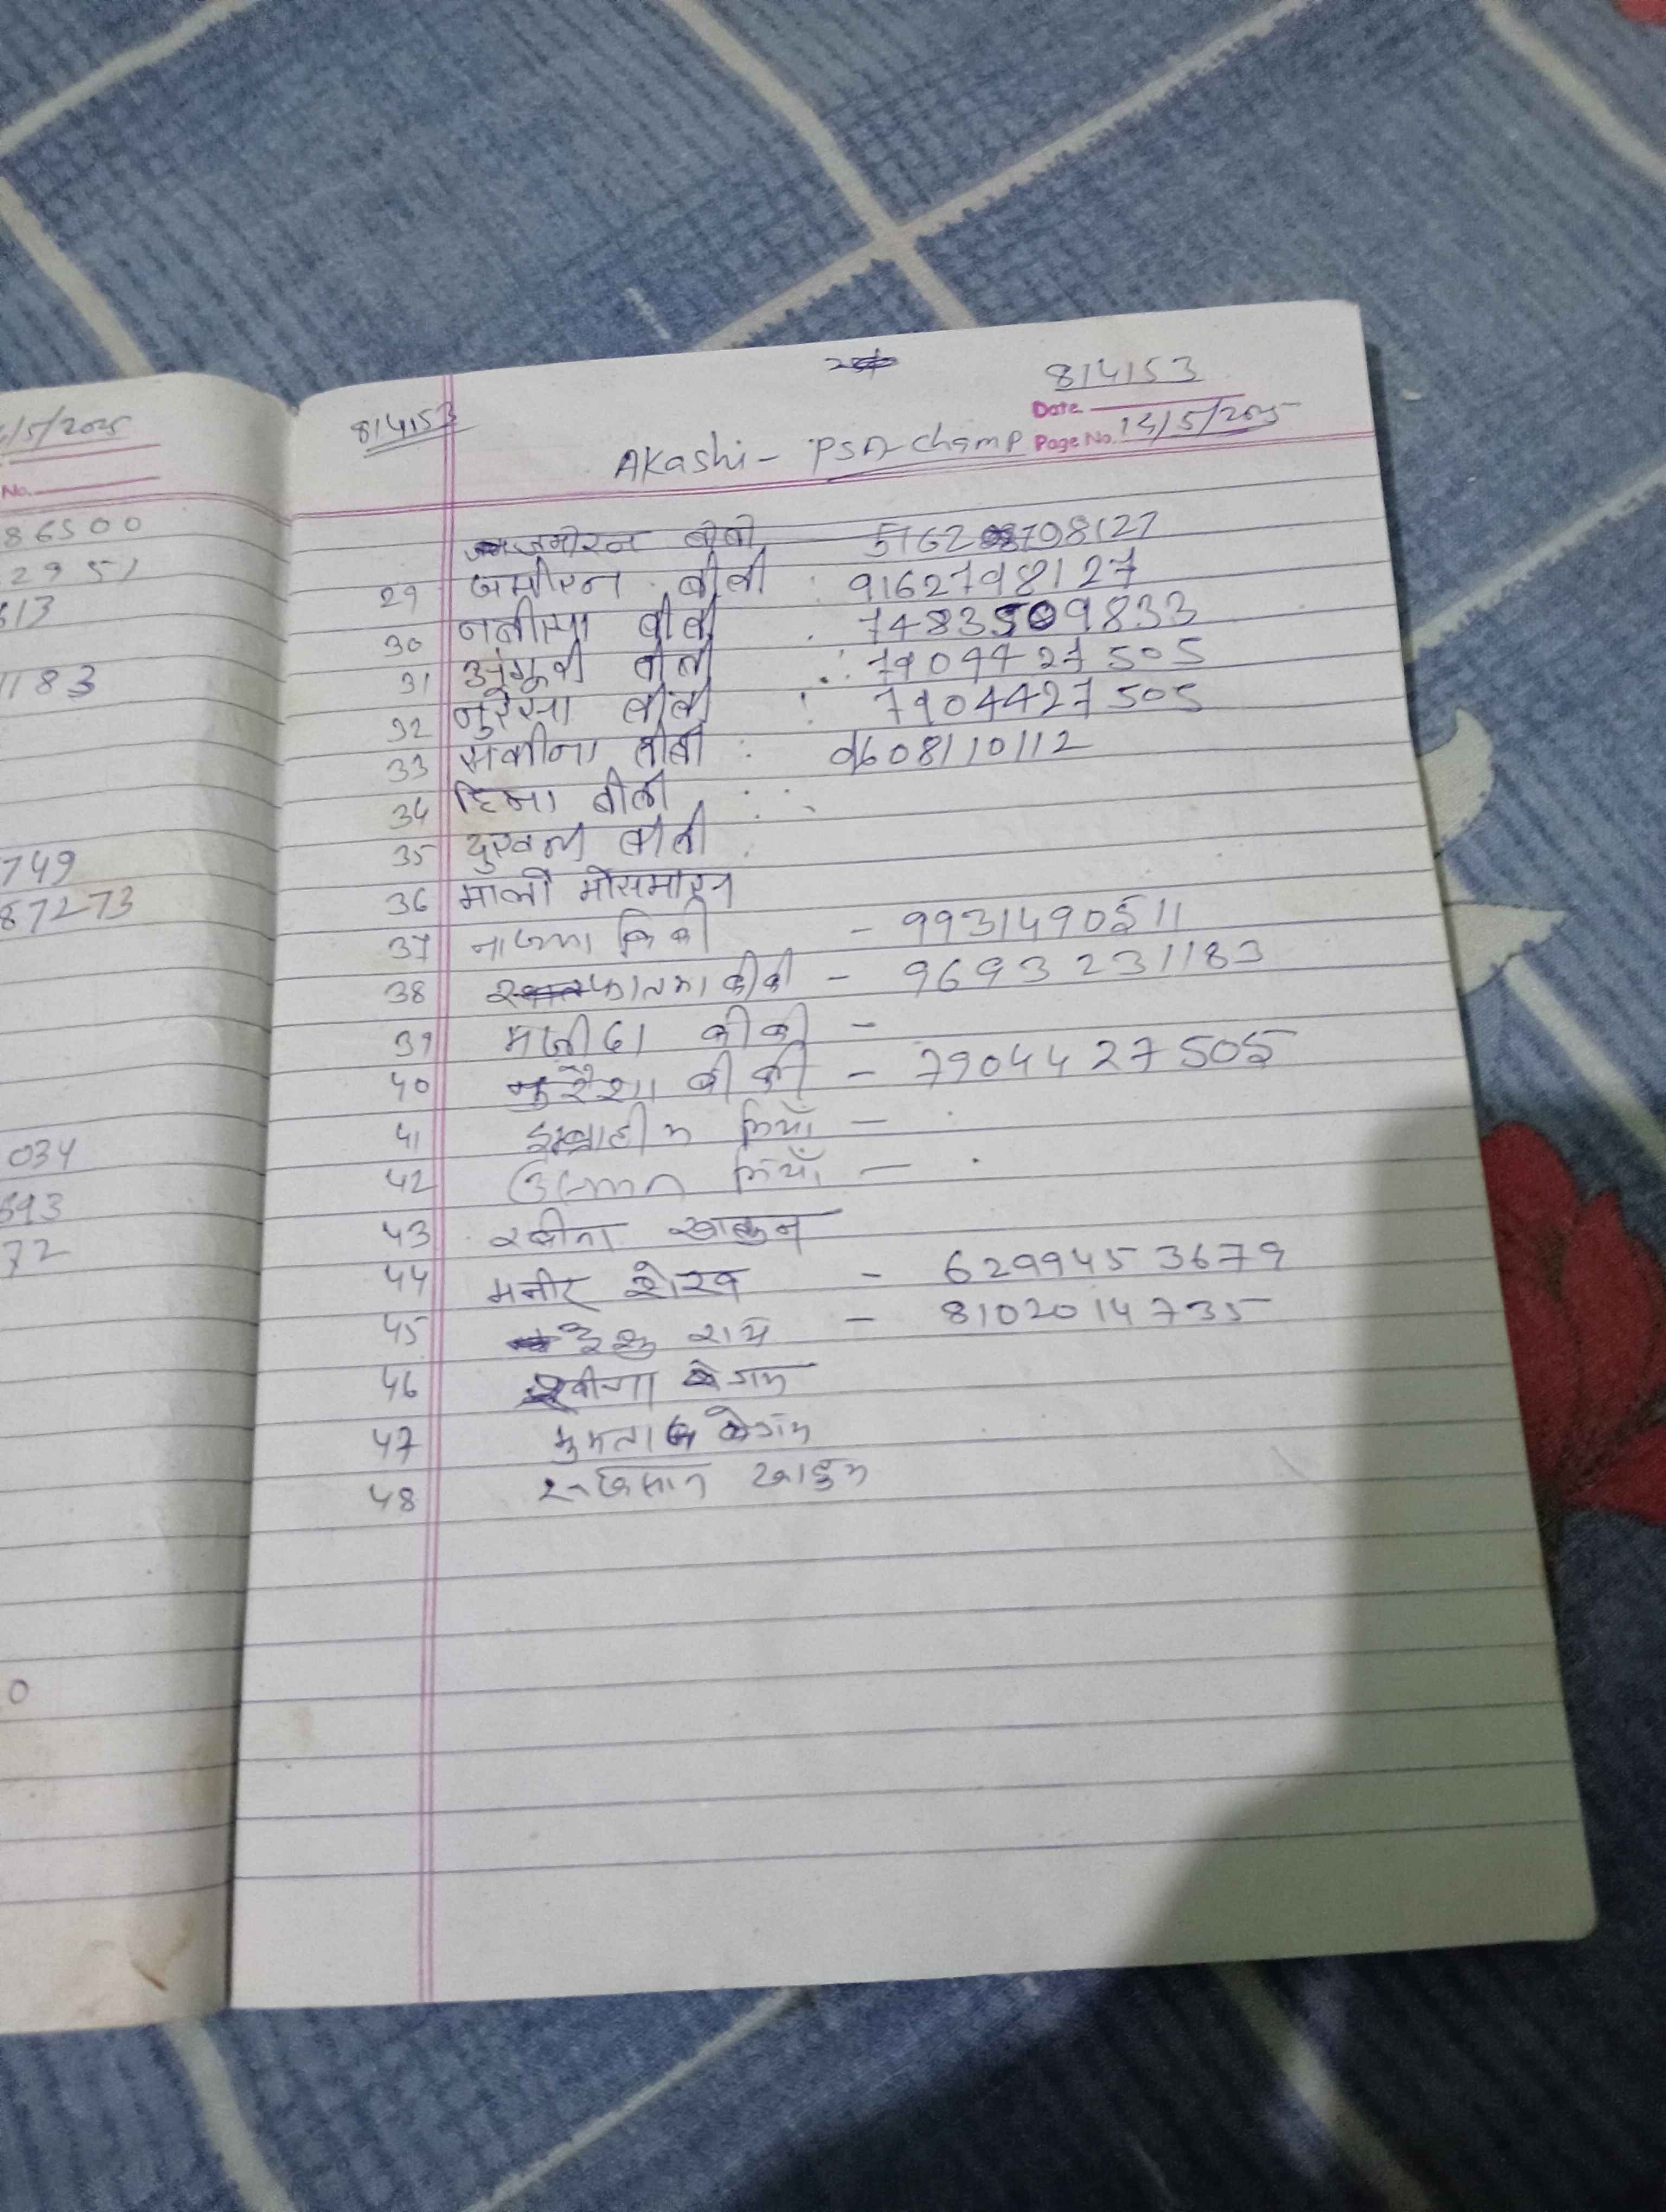 /5/2025
No.
86500
22951
613
1183
749
87273
034
693
72
0
814153
814153
Date
Akashi - PSA champ
Page No. 14/5/2025
जमीरन बीबी 5162 708127
29 जमीरन बीबी : 9162798127
30 नतीसा बीबी : 7483509833
31 अंगूरी बीबी : 7904427505
32 नुरैसा बीबी : 7904427505
33 सकीना बीबी : 9608110112
34 हिना बीबी :
35 दुखनी बीबी :
36 मोसमात
37 नाजमा बिबी - 9931490511
38 फातमा बीबी - 9693231183
39 मजीदा बीबी -
40 नुरैशा बीबी - 7904427505
41 इब्राहीम मियाँ -
42 उस्मान मियाँ -
43 रबीना खातुन
44 मनीर शेख - 6299453679
45 राय - 8102014735
46 बेगम
47 मुमताज बेगम
48 खातुन